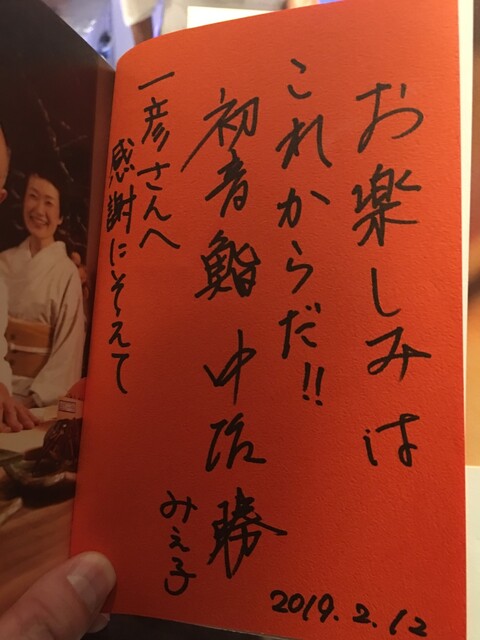 お楽しみは
これからだ!!
初音鮨 中治勝
みえ子
一彦さんへ
感謝にそえて
2019.2.12